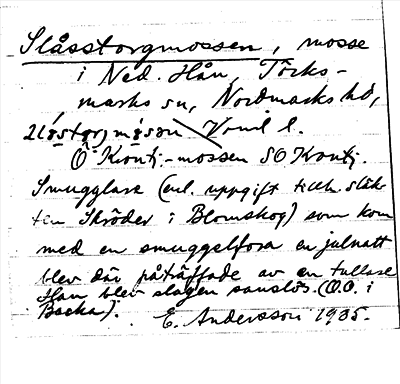 Slåsstorgmossen, mosse
i Ned. Hån, Töcks-
marks sn, Nordmarks hd,
Vrml l.
Ö Kvntj.-mossen SO Kvntj.
Smugglare (enl. uppgift tillh. släk-
ten Skröder i Blomskog) som kom
med en smuggelfora en julnatt
blev där påträffade av en tullare
Han blev slagen sanslös. (O.O. i
Backa).
E. Andersson 1935.